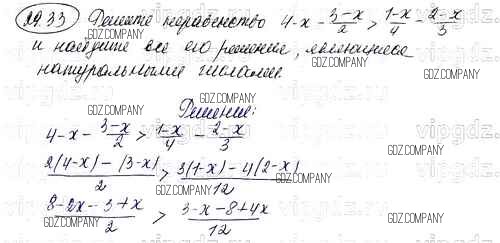 29.33 Решите неравенство 4-x-\frac{3-x}{2}>\frac{1-x}{4}-\frac{2-x}{3}
и найдите все его решения, являющиеся
натуральными числами.
Решение:
4-x-\frac{3-x}{2}>\frac{1-x}{4}-\frac{2-x}{3}
\frac{2(4-x)-(3-x)}{2}>\frac{3(1-x)-4(2-x)}{12}
\frac{8-2x-3+x}{2}>\frac{3-x-8+4x}{12}
GDZ.COMPANY
vipgdz.com